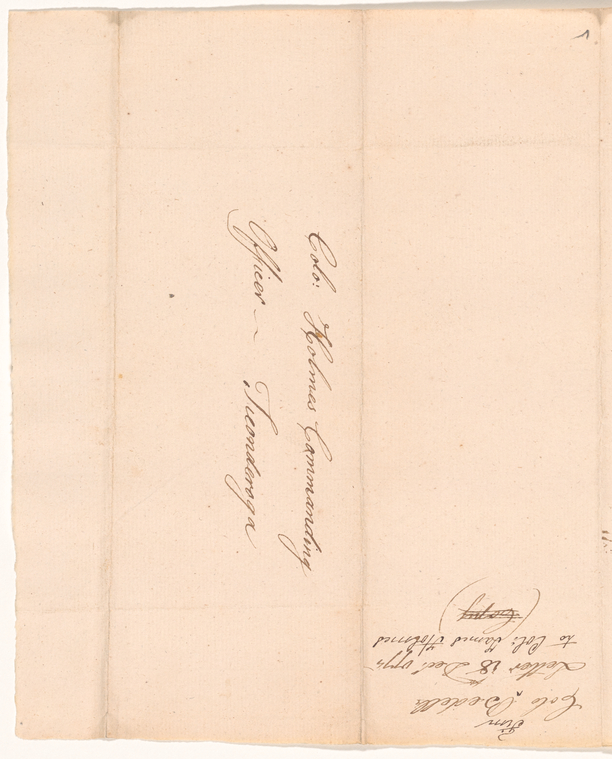 Colo: Holmes Commanding
Officer — Ticonderoga
Tim
Colo ^ Bedell
Letter 18 Decr. 1775
to Col: James Holmes
(Copy)